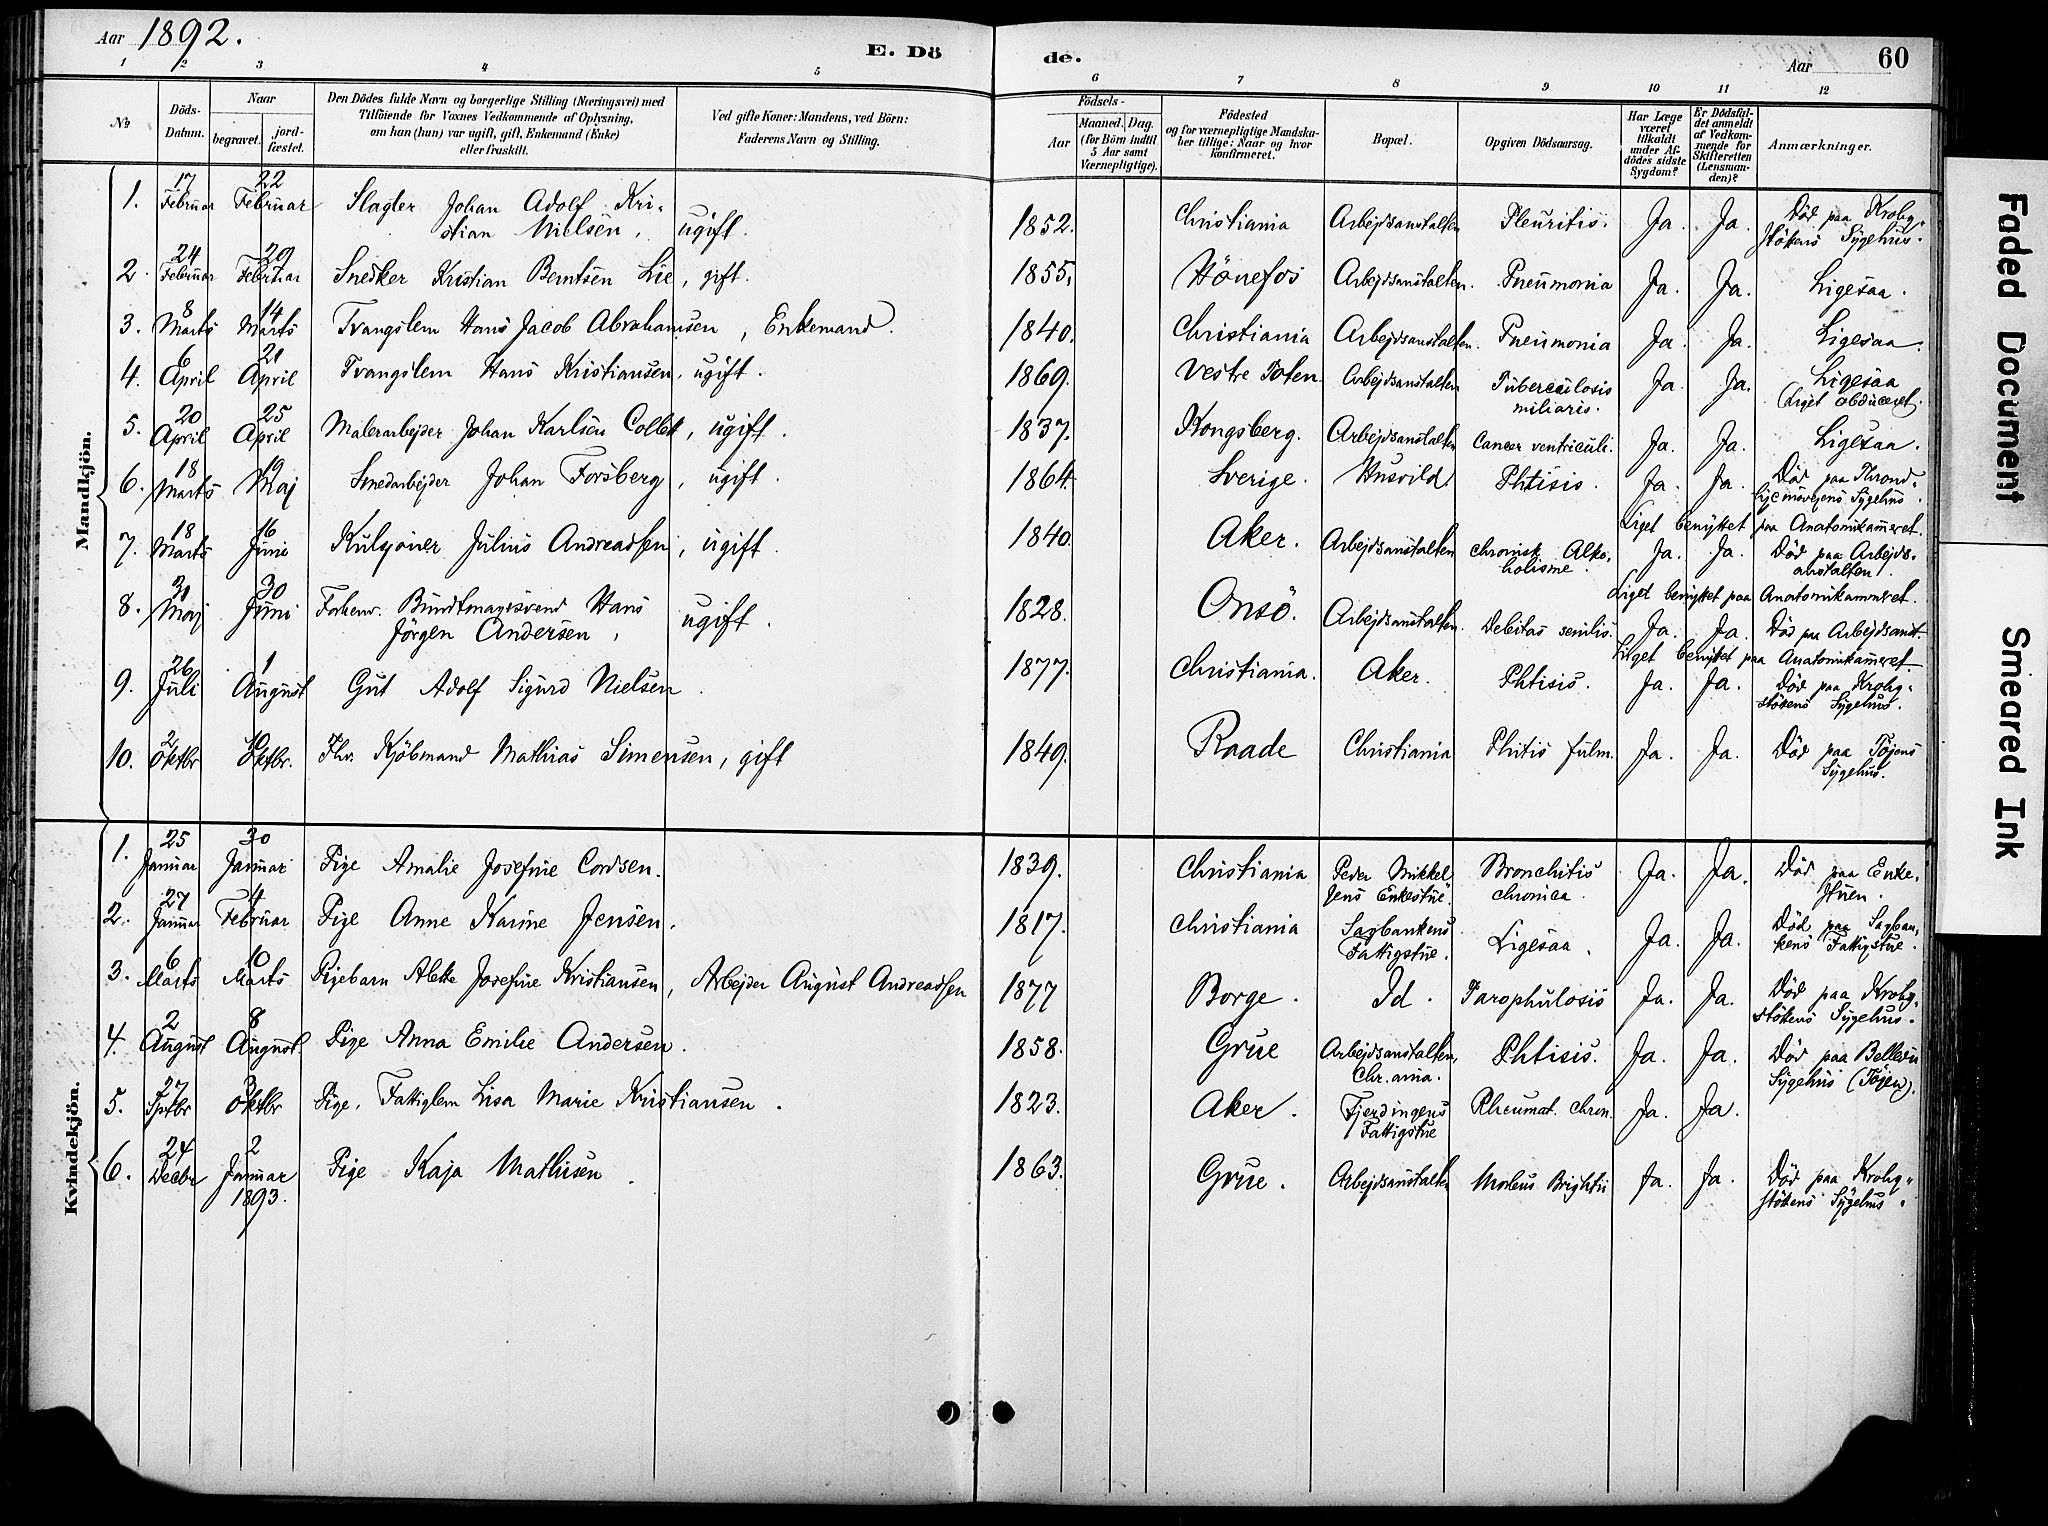 Aar 1892.
E. Dö de.
Aar 60
1 2 3 4 5 6 7 8 9 10 11 12
№
Döds-Datum.
Naar
begravet.
jord-fæstet.
Den Dödes fulde Navn og borgerlige Stilling (Næringsvei) med
Tilföiende for Voxnes Vedkommende af Oplysning,
om han (hun) var ugift, gift, Enkemand (Enke)
eller fraskilt.
Ved gifte Koner: Mandens, ved Börn:
Faderens Navn og Stilling.
Födsels-
Aar
Maaned. Dag.
(for Börn indtil
5 Aar samt
Værnepligtige).
Födested
og for værnepligtige Mandska-
ber tillige: Naar og hvor
konfirmeret.
Bopæl.
Opgiven Dödsaarsag.
Har Læge
været
tilkaldt
under Af-
dödes sidste
Sygdom?
Er Dödsfal-
det anmeldt
af Vedkom-
mende for
Skifteretten
(Lensman-
den)?
Anmærkninger.
Mandkjön.
1. 17 Februar 22 Februar Slagter Johan Adolf Kri-
stian Nielsen, ugift. 1852. Christiania Arbejdsanstalten Pleuritis. Ja. Ja. Död paa Krohg-
stöttens Sygehus.
2. 24 Februar 29 Februar Snedker Kristian Berntsen Lie, gift. 1855. Hönefos Arbejdsanstalten. Pneumonia Ja. Ja. Ligesaa.
3. 8 Marts 14 Marts Tvangslem Hans Jacob Abrahamsen, Enkemand. 1840. Christiania Arbejdsanstalten. Pneumonia Ja. Ja. Ligesaa.
4. 6 April 21 April Tvangslem Hans Kristiansen, ugift. 1869. Vestre Toten Arbejdsanstalten Tuberculosis
miliaris. Ja. Ja. Ligesaa
(Liget obduceret).
5. 20 April 25 April Malerarbejder Johan Karlsen Collett, ugift. 1837. Kongsberg. Arbejdsanstalten Cancer ventriculi. Ja. Ja. Ligesaa.
6. 18 Marts 19 Maj Smedarbejder Johan Forsberg, ugift. 1864. Sverige. Husvild Phtisis. Ja. Ja. Död paa Thrond-
hjemsvejens Sygehus.
Liget benyttet paa Anatomikammeret.
7. 18 Marts 16 Juni Julius Andreassen, ugift. 1840. Aker. Arbejdsanstalten chronisk Alko-
holisme. Ja. Ja. Död paa Arbejds-
anstalten.
Liget benyttet paa Anatomikammeret.
8. 31 Maj 30 Juni Forhenv. Bundtmagersvend Hans
Jörgen Andersen, ugift. 1828. Onsö. Arbejdsanstalten Debitas senilis. Ja. Ja. Död paa Arbejdsanst.
Liget benyttet paa Anatomikammeret.
9. 26 Juli 1 August Gut Adolf Sigurd Nielsen. 1877. Christiania. Aker. Phtisis. Ja. Ja. Död paa Krohg-
stöttens Sygehus.
10. 2 Oktbr 10 Oktbr. Fhv. Kjöbmand Mathias Simensen, gift 1849. Raade Christiania Phitis fulm. Ja. Ja. Död paa Töjens
Sygehus.
Kvindekjön.
1. 25 Januar 30 Januar Pige Amalie Josefine Cordsen. 1839. Christiania Peder Mikkel
sens Enkestue. Bronchitis
chronica. Ja. Ja. Död paa Enke-
stuen.
2. 27 Januar 4 Februar Pige Anne Karine Jensen. 1817. Christiania Sagbankens
Fattigstue. Ligesaa. Ja. Ja. Död paa Sagban-
kens Fattigstue.
3. 6 Marts 10 Marts Pigebarn Josefine Kristiansen, Arbejder August Andreassen 1877 Borge. Id. Ja. Ja. Död paa Krohg-
stöttens Sygehus.
4. 2 August 8 August. Pige Anna Emilie Andersen. 1858. Grue Arbejdsanstalten,
Chr.ania. Phtisis. Ja. Ja. Död paa
Sygehus (Töjen).
5. 27 Sptbr 3 Oktbr Pige, Fattiglem Lisa Marie Kristiansen. 1823. Aker. Fjerdingens
Fattigstue Rheumat. chron. Ja. Ja.
6. 24 Decbr 2 Januar
1893. Pige Kaja Mathisen. 1863. Grue. Arbejdsanstalten Morbus Brightii Ja. Ja. Död paa Krohg-
stöttens Sygehus.
Faded Document
Smeared Ink